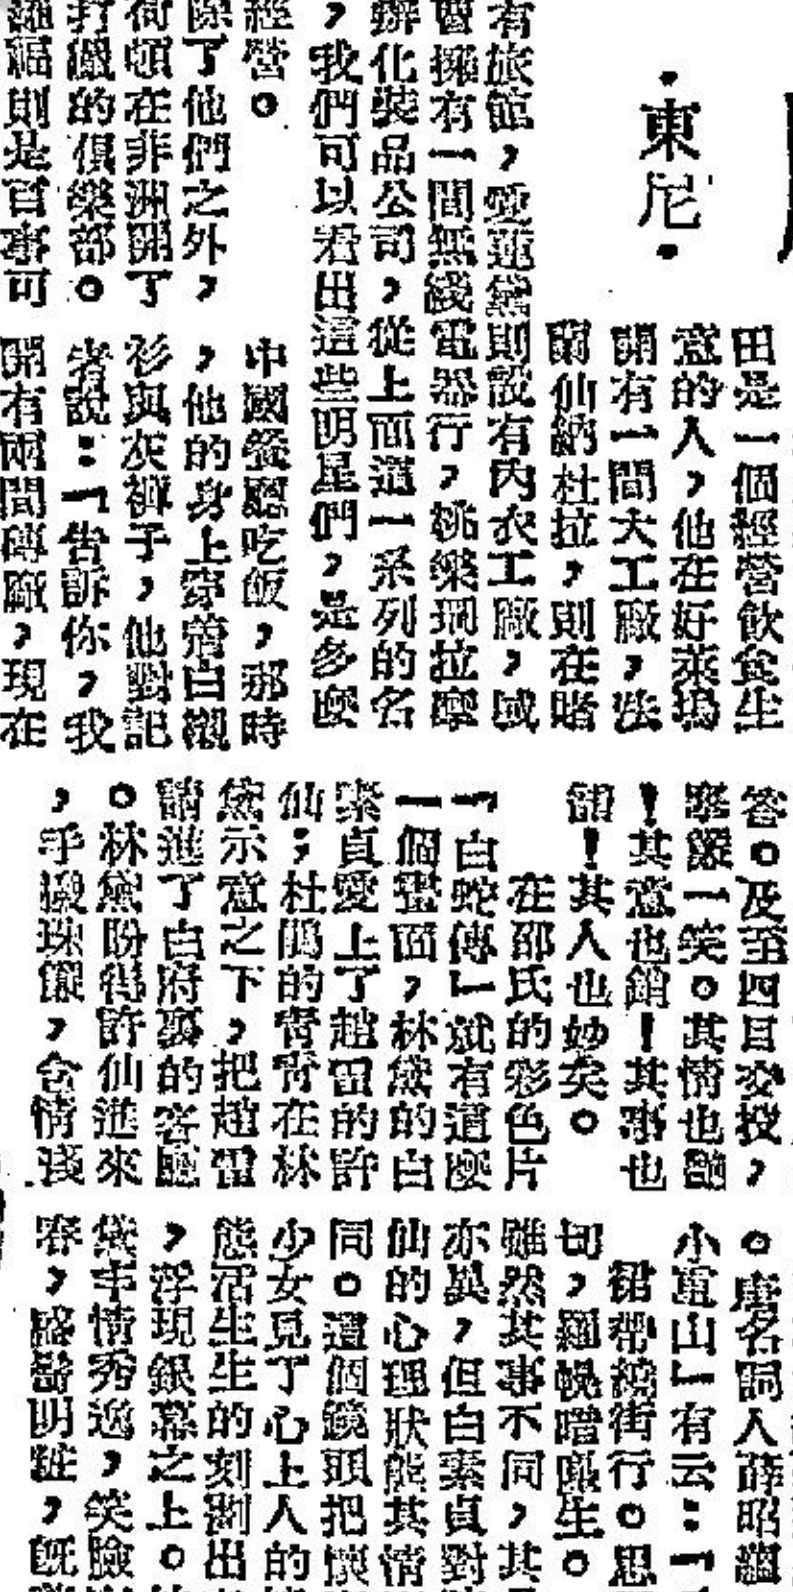 ·東尼·
田是一個經營飲食生
意的人，他在好萊塢
開有一間大工廠，法
蘭仙納杜拉，則在賭
有旅館，愛蓮黛則設有內衣工廠，域
曾擁有一間無綫電器行，姚樂珊拉摩
辦化裝品公司，從上面這一系列的名
，我們可以看出這些明星們，是多麼
經營。
除了他們之外，
荷頓在非洲開了
打獵的俱樂部。
則是百事可
中國餐廳吃飯，那時
，他的身上穿着白襯
衫與灰褲子，他對記
者說：「告訴你，我
開有兩間磚廠，現在
答。及至四目交投，
嫣一笑。其情也艷
！其意也銷！其事也
韻！其人也妙矣。
在邵氏的彩色片
「白蛇傳」就有這麼
一個畫面，林黛的白
素貞愛上了趙雷的許
仙；杜鵑的青青在林
黛示意之下，把趙雷
請進了白府裏的客廳
。林黛盼得許仙進來
，手撥珠簾，含情淺
。唐名詞人薛昭蘊
小重山」有云：「
裙帶繞街行。思
切，羅幌暗塵生。
雖然其事不同，其
亦異，但白素貞對
仙的心理狀態其情
同。這個鏡頭把懷
少女見了心上人的
態活生生的刻劃出
，浮現銀幕之上。
黛丰情秀逸，笑臉
春，盛鬋明粧，旣